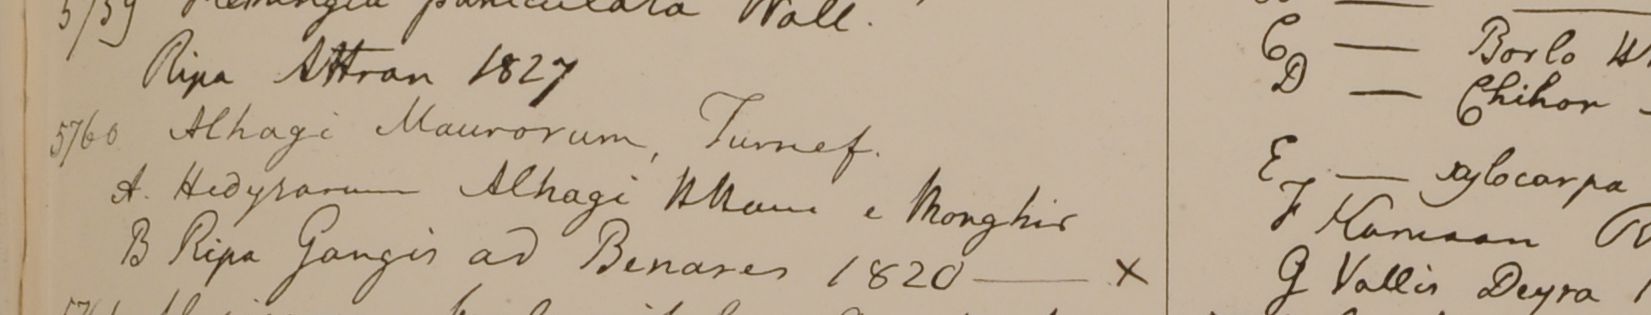 5759 Flemingia paniculata Wall.
Ripa Attran 1827
5760 Alhagi Maurorum, Turnef.
A. Hedysarum Alhagi e Monghir
B Ripa Gangis ad Benares 1820 — x
C — Borlo
D — Chihor
E — xylocarpa
F Kamaon
G Vallis Deyra